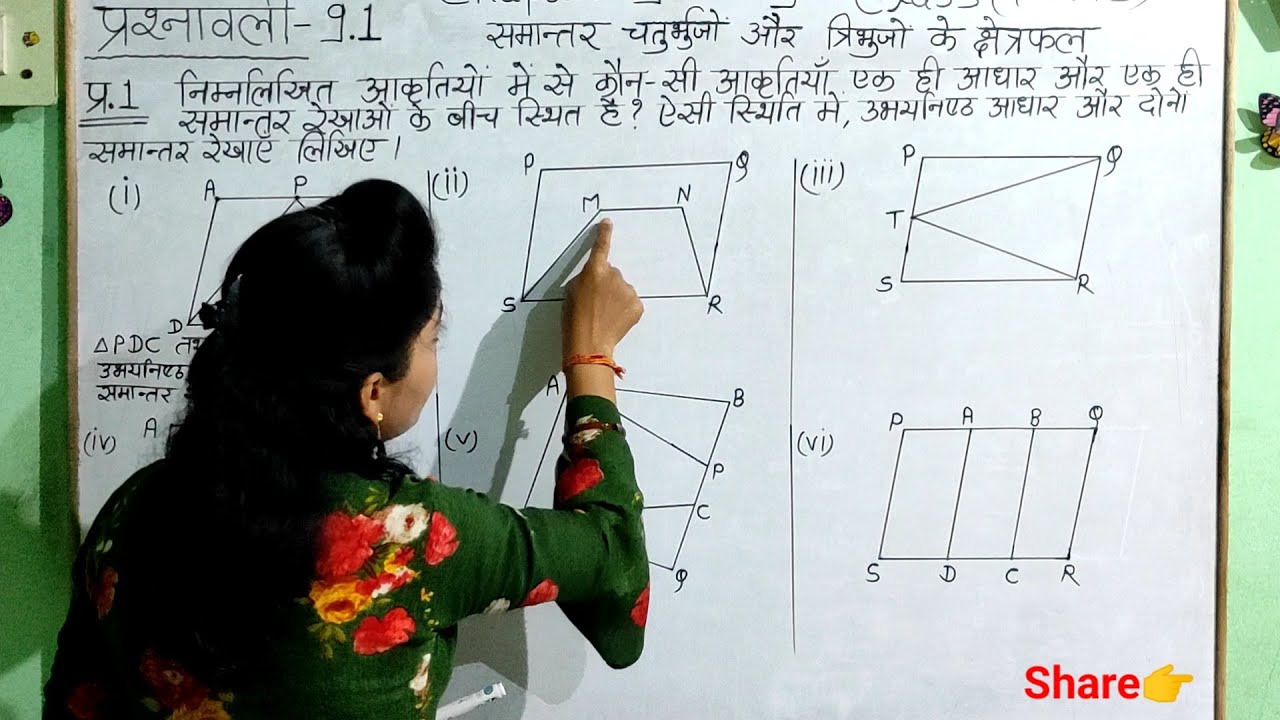 प्रश्नावली-9.1
समान्तर चतुर्भुजों और त्रिभुजों के क्षेत्रफल
प्र.1 निम्नलिखित आकृतियों में से कौन-सी आकृतियाँ एक ही आधार और एक ही
समान्तर रेखाओं के बीच स्थित है? ऐसी स्थिति मे, उभयनिष्ठ आधार और दोनों
समान्तर रेखाएँ लिखिए।
(i) A P
D
△PDC
उभयनिष्ठ
समान्तर
(ii) P Q
M N
S R
(iii) P Q
T
S R
(iv) A
(v) A B
P
C
Q
(vi) P A B Q
S D C R
Share